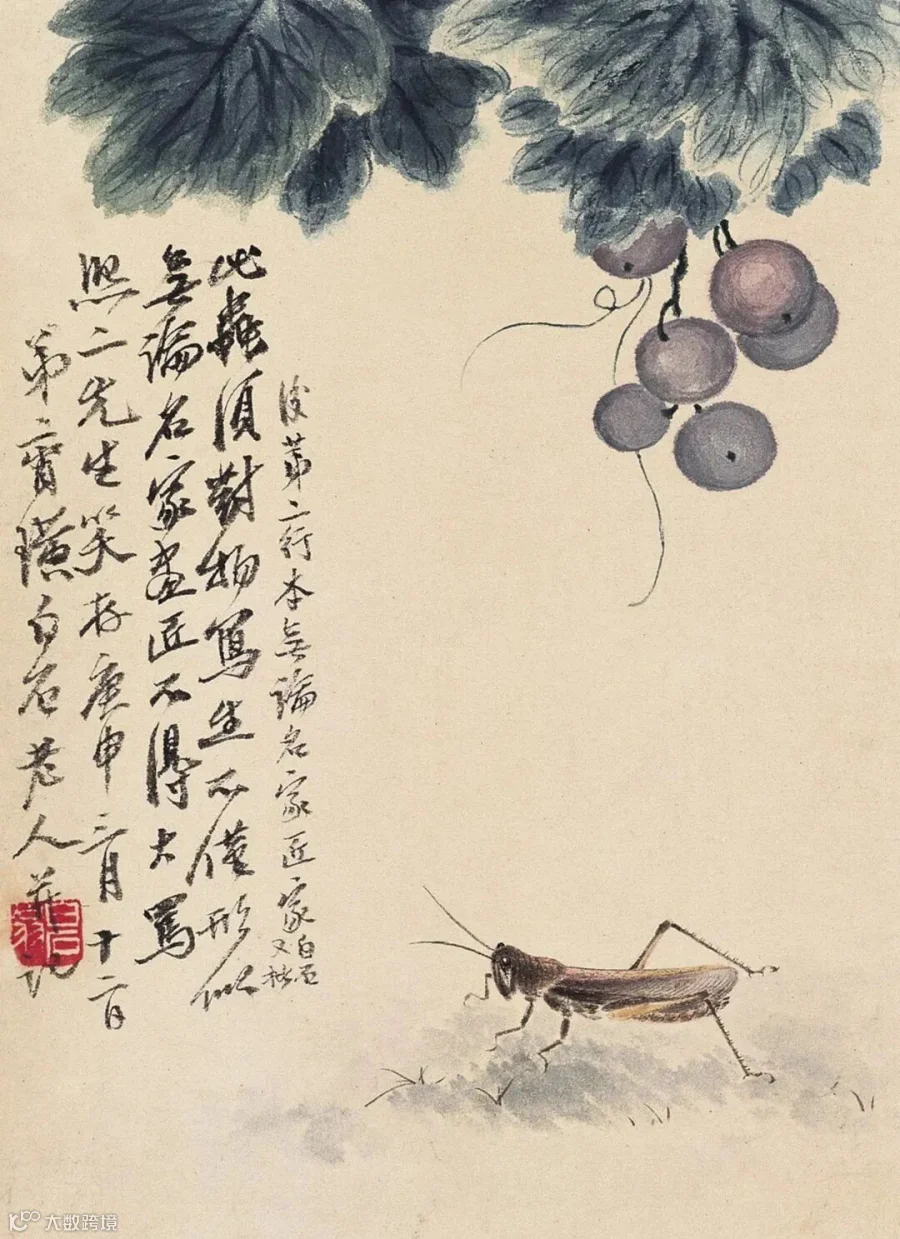 後第二行本無論名家匠家白石
又批
此蟲須對物寫生不僅形似
無論名家畫匠不得大罵
熙二先生笑存庚申三月十二日
弟齊璜白石老人并記
白石翁
大数跨境